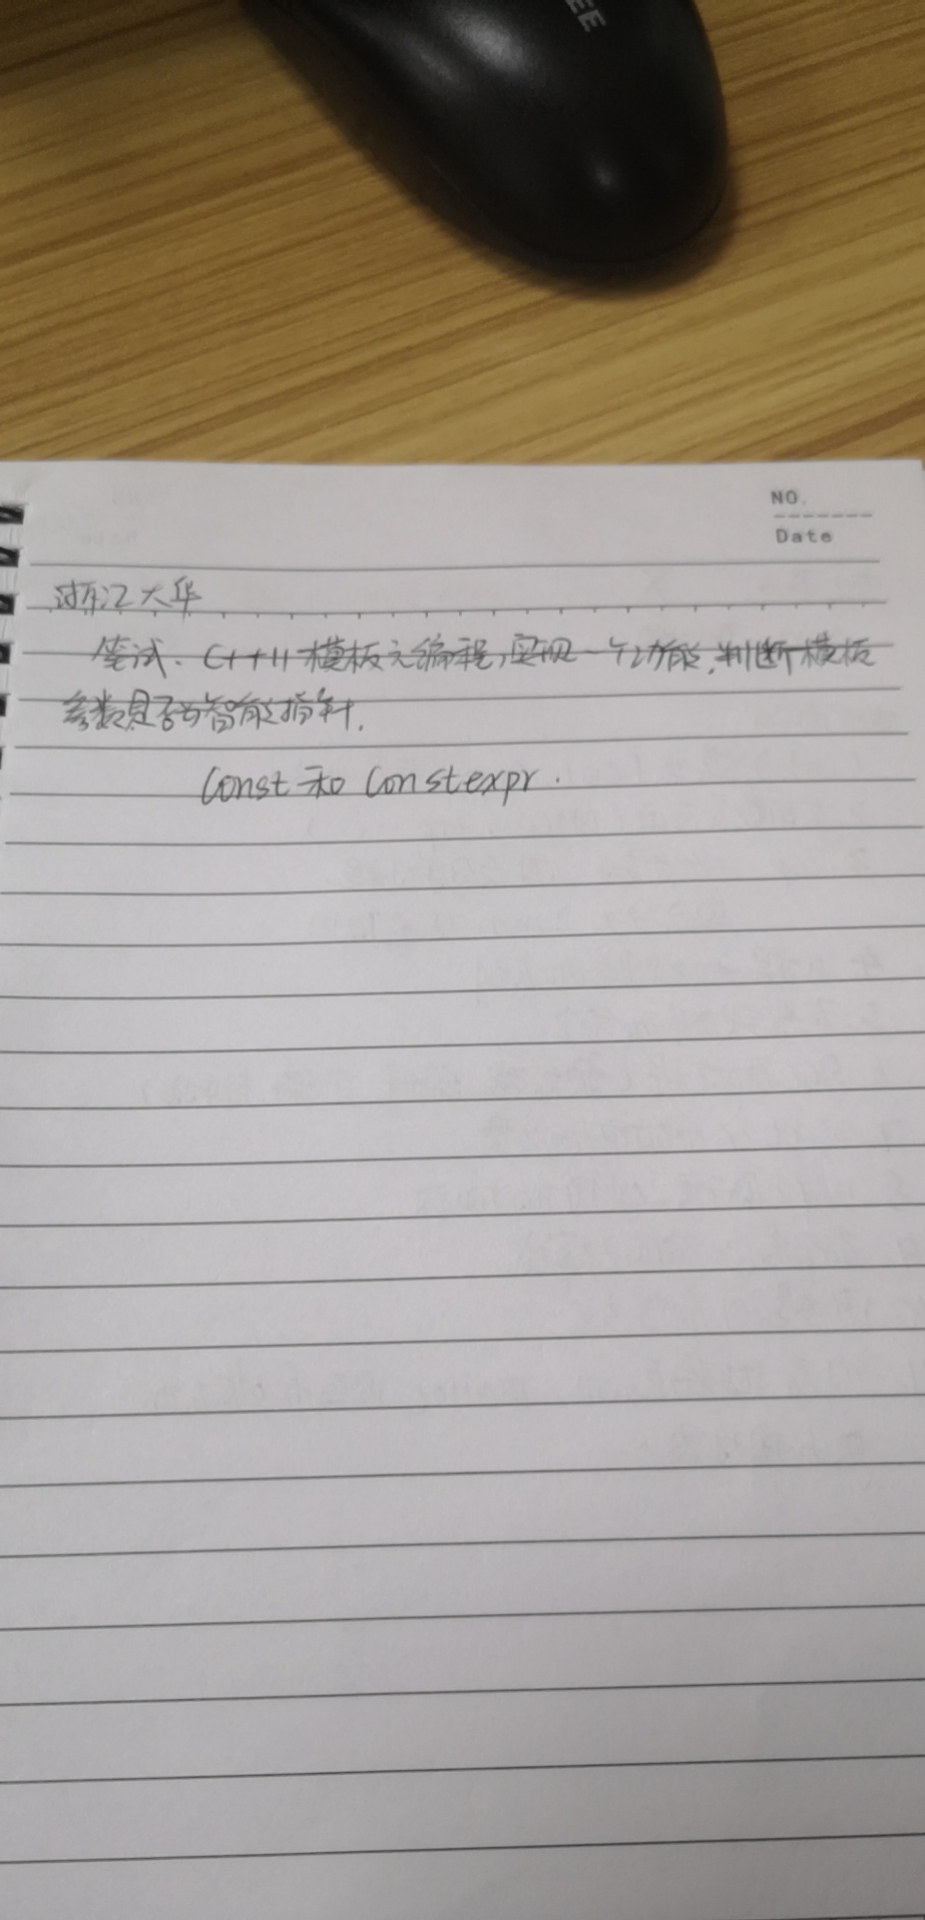 EE
NO.
Date
浙江大华
笔试、C++11模板元编程,实现一个功能,判断模板
参数是否为智能指针.
Const和Constexpr.